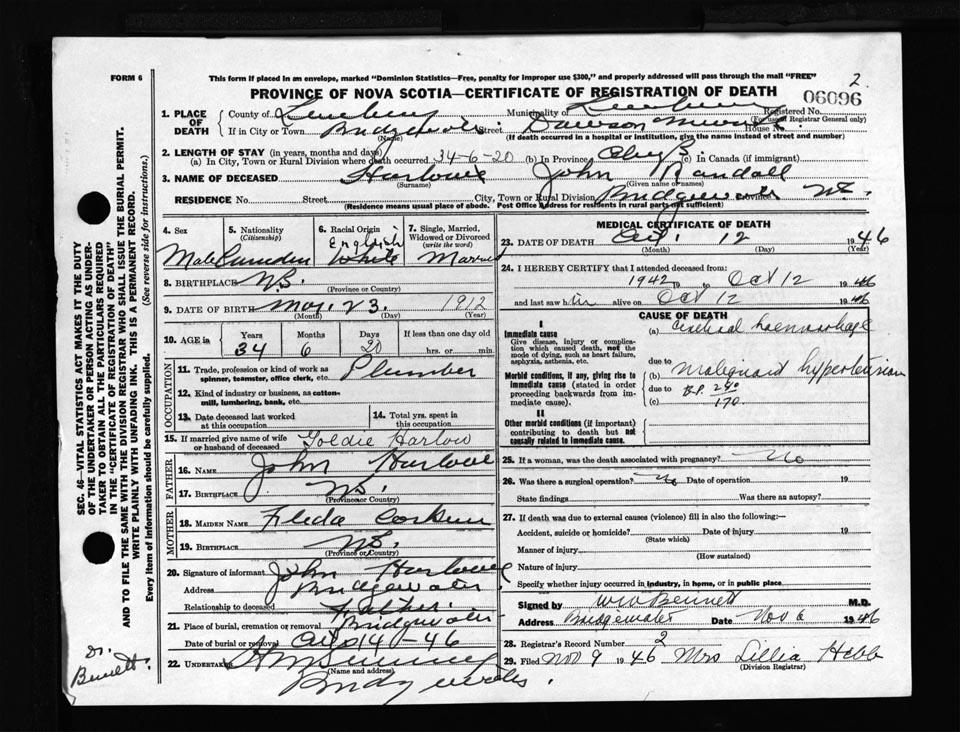 FORM 6
This form if placed in an envelope, marked "Dominion Statistics—Free, penalty for improper use $300," and properly addressed will pass through the mail "FREE"
2
PROVINCE OF NOVA SCOTIA—CERTIFICATE OF REGISTRATION OF DEATH
06096
1. PLACE OF DEATH
County of Municipality of Registered No.
(For use of Registrar General only)
If in City or Town Bridgewater Street Dawson House No.
(Name) (If death occurred in a hospital or institution, give the name instead of street and number)
2. LENGTH OF STAY (in years, months and days)
(a) In City, Town or Rural Division where death occurred 34-6-20 (b) In Province (c) in Canada (if immigrant)
3. NAME OF DECEASED Harlowe John Randall
(Surname) (Given name or names)
RESIDENCE No. Street City, Town or Rural Division Bridgewater Province N.S.
(Residence means usual place of abode. Post Office Address for residents in rural parts not sufficient)
4. Sex
Male
5. Nationality
(Citizenship)
Canadian
6. Racial Origin
English
White
7. Single, Married, Widowed or Divorced
(write the word)
Married
8. BIRTHPLACE N.S.
(Province or Country)
9. DATE OF BIRTH 23. 1912
(Month) (Day) (Year)
10. AGE is
Years Months Days If less than one day old
34 6 20 hrs. or min.
OCCUPATION
11. Trade, profession or kind of work as spinner, teamster, office clerk, etc. Plumber
12. Kind of industry or business, as cotton-mill, lumbering, bank, etc.
13. Date deceased last worked at this occupation
14. Total yrs. spent in this occupation
15. If married give name of wife or husband of deceased Goldie Harlow
FATHER
16. Name John Harlowe
17. Birthplace N.S.
(Province or Country)
MOTHER
18. MAIDEN NAME Corkum
19. BIRTHPLACE N.S.
(Province or Country)
20. Signature of informant John Harlowe
Address Bridgewater
Relationship to deceased Father
21. Place of burial, cremation or removal Bridgewater
Date of burial or removal 14-46
22. UNDERTAKER
(Name and address)
Bridgewater.
MEDICAL CERTIFICATE OF DEATH
23. DATE OF DEATH Oct. 12 1946
(Month) (Day) (Year)
24. I HEREBY CERTIFY that I attended deceased from:
1942 19 to Oct 12 1946
and last saw him alive on Oct 12 1946
CAUSE OF DEATH
I
Immediate cause
Give disease, injury or complication which caused death, not the mode of dying, such as heart failure, asphyxia, asthenia, etc.
(a) Cerebral haemorrhage
due to
Morbid conditions, if any, giving rise to immediate cause (stated in order proceeding backwards from immediate cause).
(b) Malignant hypertension
due to B.P. 240
(c) 170.
II
Other morbid conditions (if important) contributing to death but not causally related to immediate cause.
25. If a woman, was the death associated with pregnancy? No
26. Was there a surgical operation? No Date of operation 19
State findings Was there an autopsy?
27. If death was due to external causes (violence) fill in also the following:—
Accident, suicide or homicide? Date of injury 19
(State which)
Manner of injury
(How sustained)
Nature of injury
Specify whether injury occurred in industry, in home, or in public place
Signed by W W Bennett M.D.
Address Bridgewater Date Nov 6 1946
28. Registrar's Record Number 2
29. Filed Nov 9 1946 Mrs Lillia Hebb
(Division Registrar)
SEC. 46—VITAL STATISTICS ACT MAKES IT THE DUTY
OF THE UNDERTAKER OR PERSON ACTING AS UNDER-
TAKER TO OBTAIN ALL THE PARTICULARS REQUIRED
IN THE "CERTIFICATE OF REGISTRATION OF DEATH"
AND TO FILE THE SAME WITH THE DIVISION REGISTRAR WHO SHALL ISSUE THE BURIAL PERMIT.
WRITE PLAINLY WITH UNFADING INK. THIS IS A PERMANENT RECORD.
Every item of information should be carefully supplied. (See reverse side for instructions.)
Dr.
Bennett.